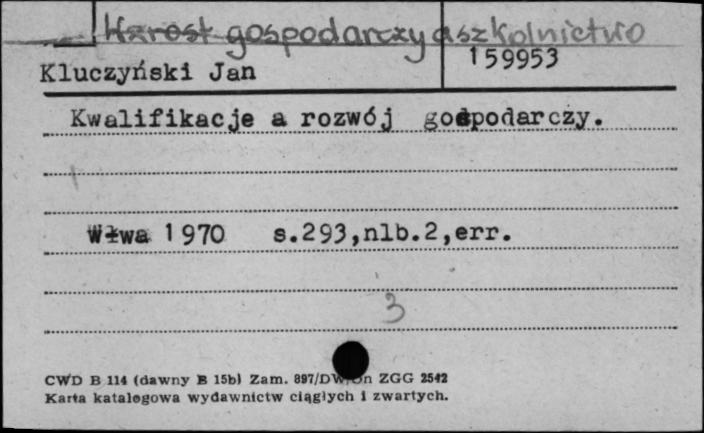 Wzrost gospodarczy a szkolnictwo
Kluczyński Jan
159953
Kwalifikacje a rozwój gospodarczy.
W-wa 1970 s.293,nlb.2,err.
3
CWD B 114 (dawny B 15b) Zam. 897/DW/On ZGG 2542
Karta katalogowa wydawnictw ciągłych i zwartych.